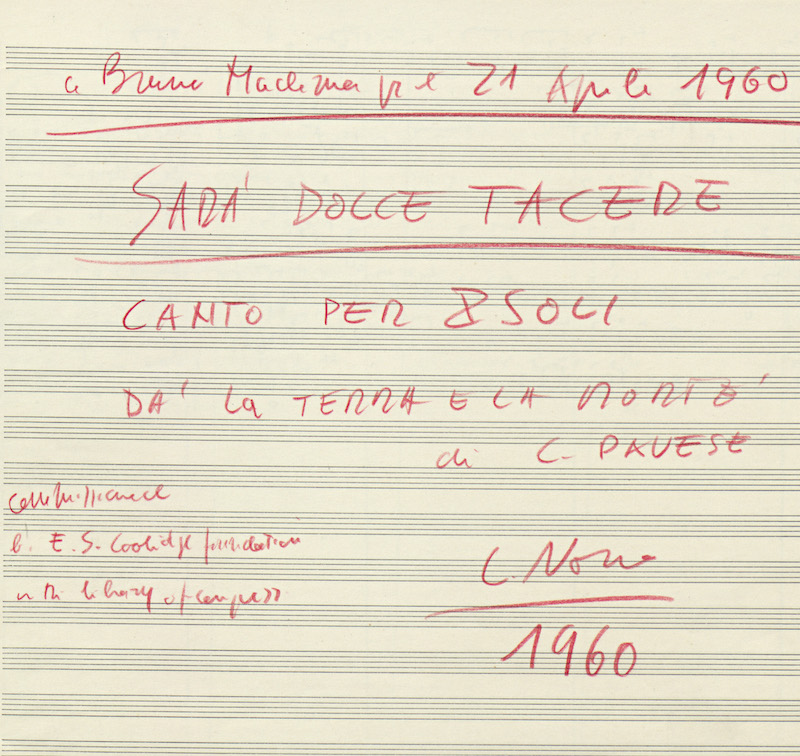 a Bruno Maderna per il 21 Aprile 1960
SARA' DOLCE TACERE
CANTO PER 8 SOLI
DA' la TERRA E LA MORTE'
di C. PAVESE
commissioned
by E. S. Coolidge foundation
in the library of congress
L. Nono
1960